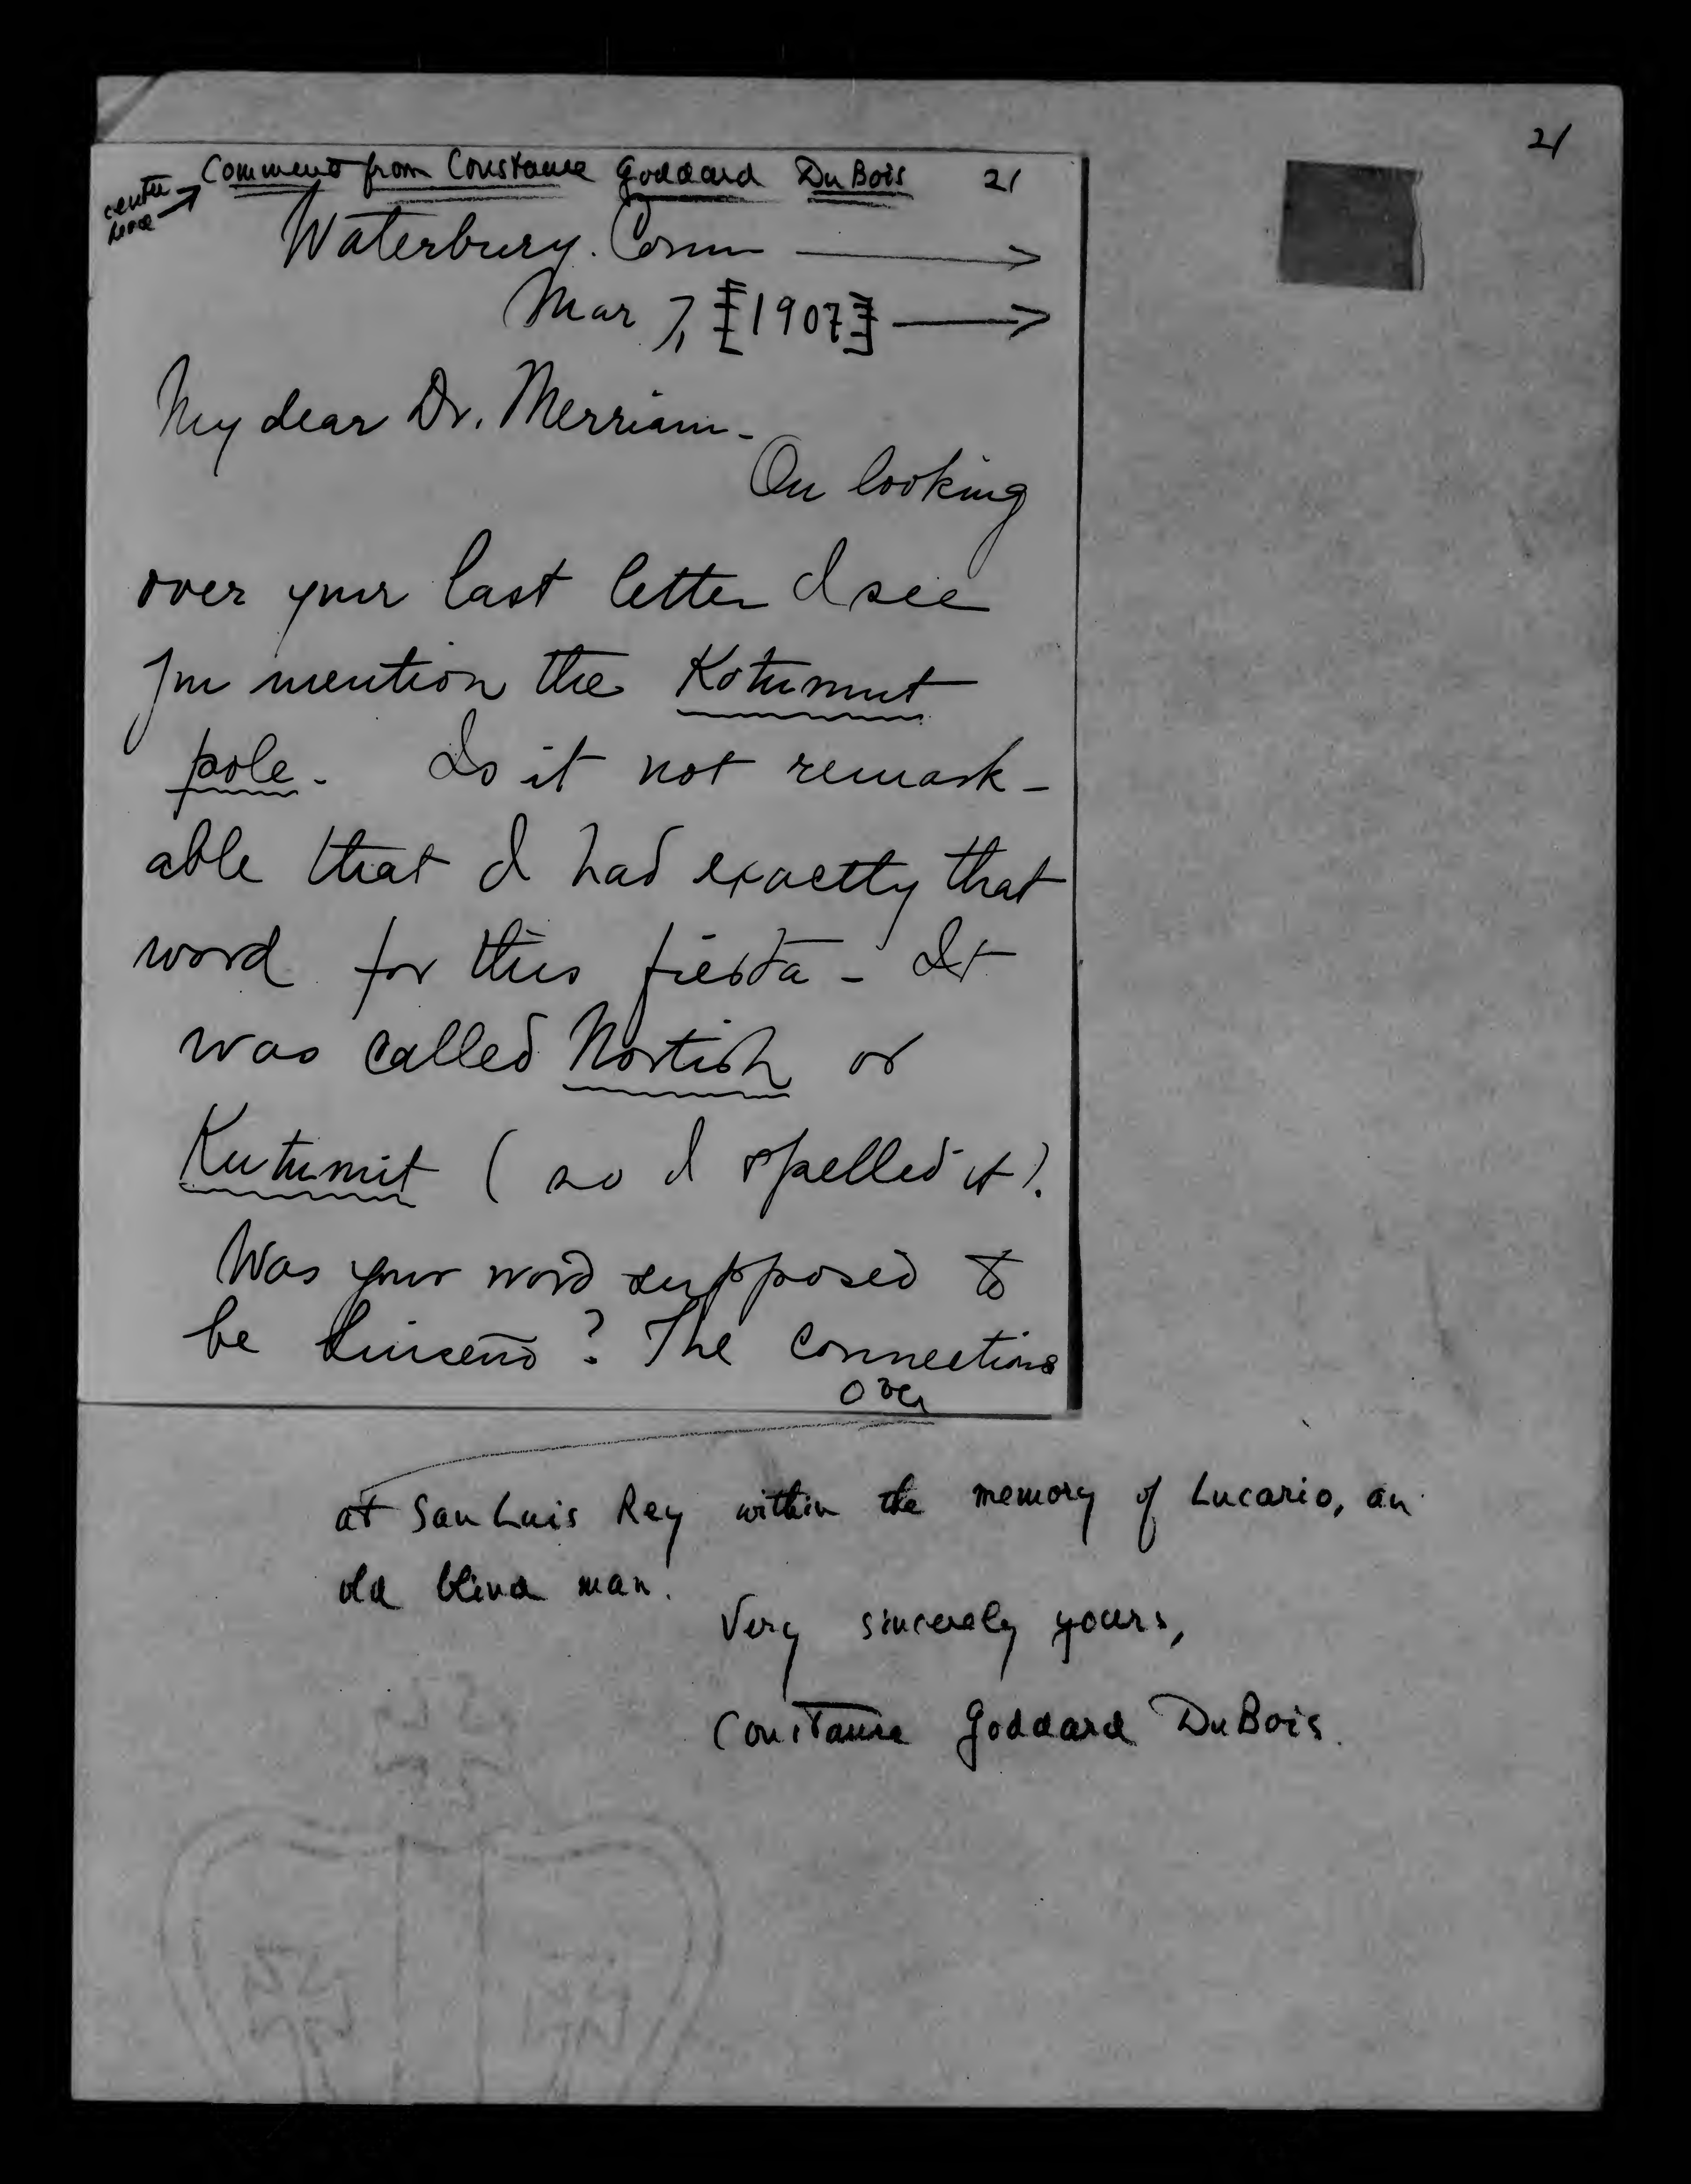 21
Comment from Constance Goddard DuBois 21
center
here
Waterbury. Conn
Mar 7, [1907]
My dear Dr. Merriam -
On looking
over your last letter I see
you mention the Kotumut
pole. Is it not remark-
able that I had exactly that
word for this fiesta - It
was called Nortish or
Kutumit (so I spelled it).
Was your word supposed to
be Luiseño? The connections
over
at San Luis Rey within the memory of Lucario, an
old blind man.
Very sincerely yours,
Constance Goddard DuBois.